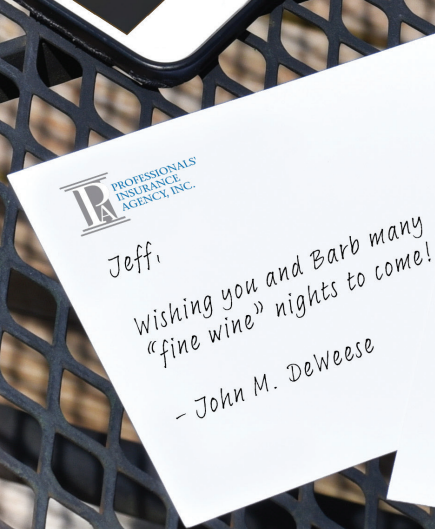 PROFESSIONALS'
INSURANCE
AGENCY, INC.
IPA
Jeff,
Wishing you and Barb many
“fine wine” nights to come!
– John M. DeWeese